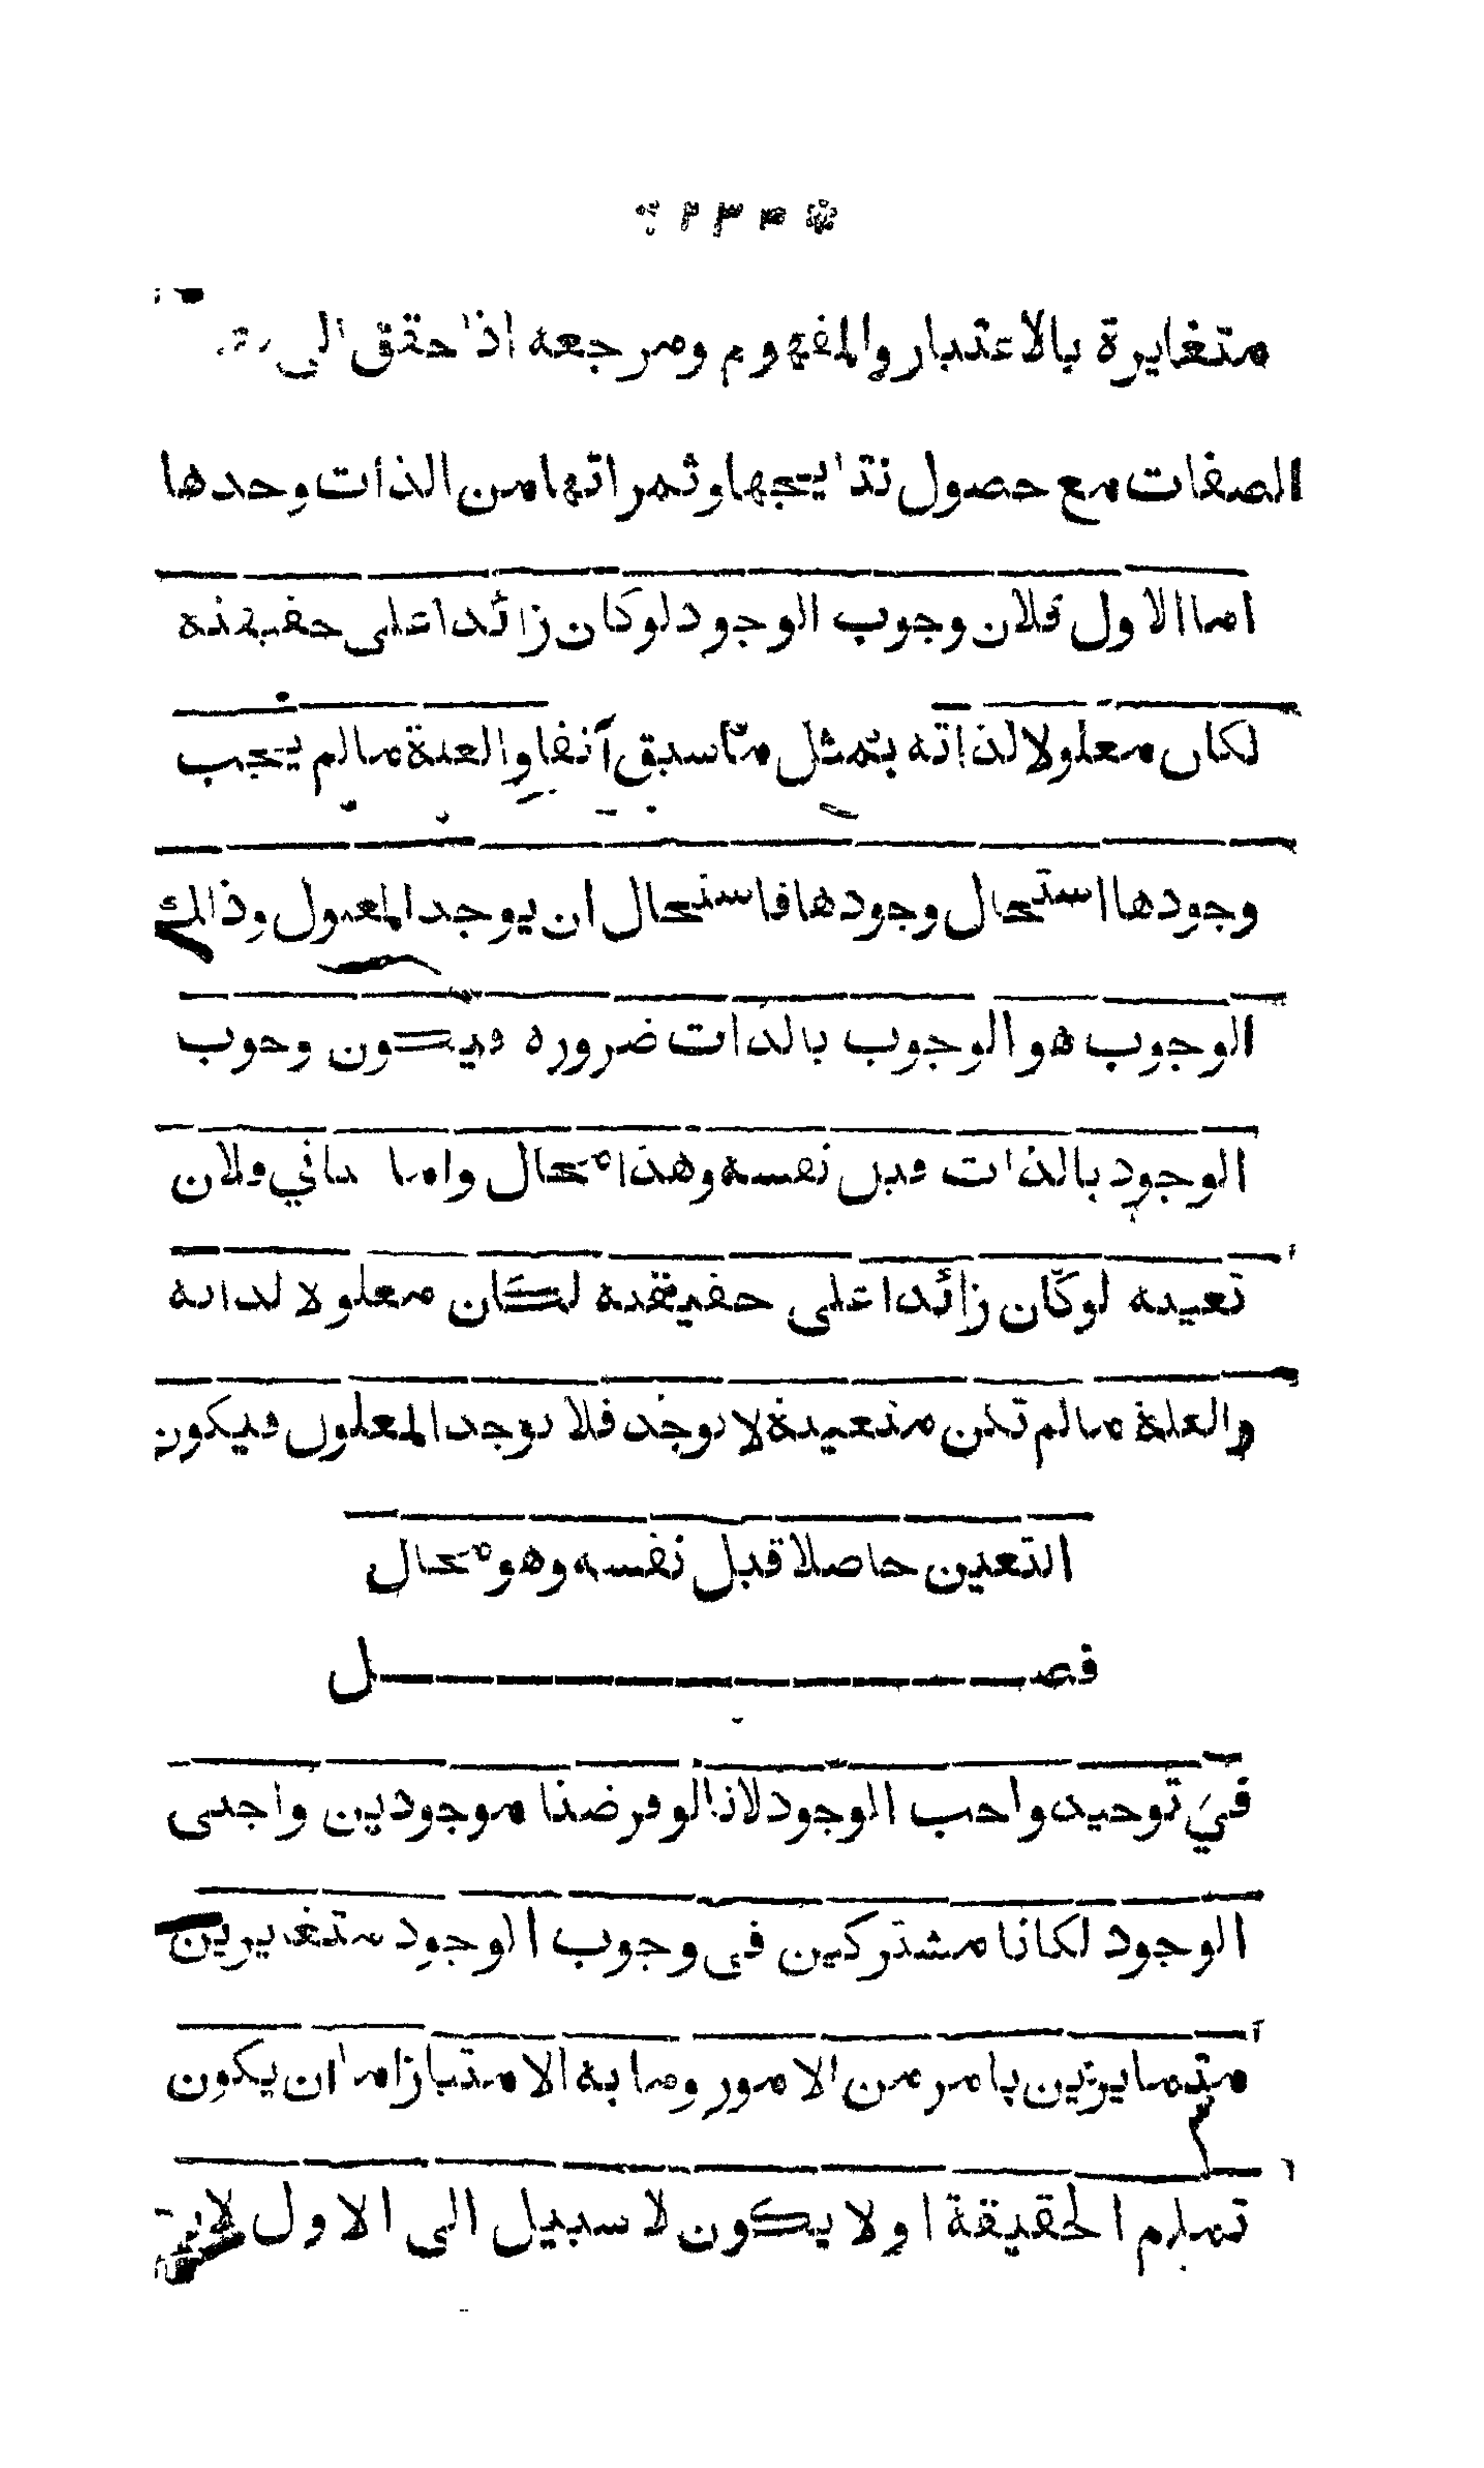 متغايرة بالاعتبار والمفهوم ومرجعه اذا حقق الى
الصفات مع حصول نتايجها وثمراتها من الذات وحدها
اما الاول فلان وجوب الوجود لو كان زائدا على حقيقته
لكان معلولا لذاته بمثل ما سبق آنفا والعلة مالم يجب
وجودها استحال وجودها فاستحال ان يوجد المعلول وذالك
الوجوب هو الوجوب بالذات ضرورة فيكون وجوب
الوجود بالذات قبل نفسه وهذا محال واما الثاني فلان
تعينه لو كان زائدا على حقيقته لكان معلولا لذاته
والعلة مالم تكن متعينة لا توجد فلا يوجد المعلول فيكون
التعين حاصلا قبل نفسه وهو محال
فصل
في توحيد واجب الوجود لانا لو فرضنا موجودين واجبى
الوجود لكانا مشتركين فى وجوب الوجود متغيرين
متمايزين بامر من الامور وما به الامتياز اما ان يكون
تمام الحقيقة او لا يكون لا سبيل الى الاول